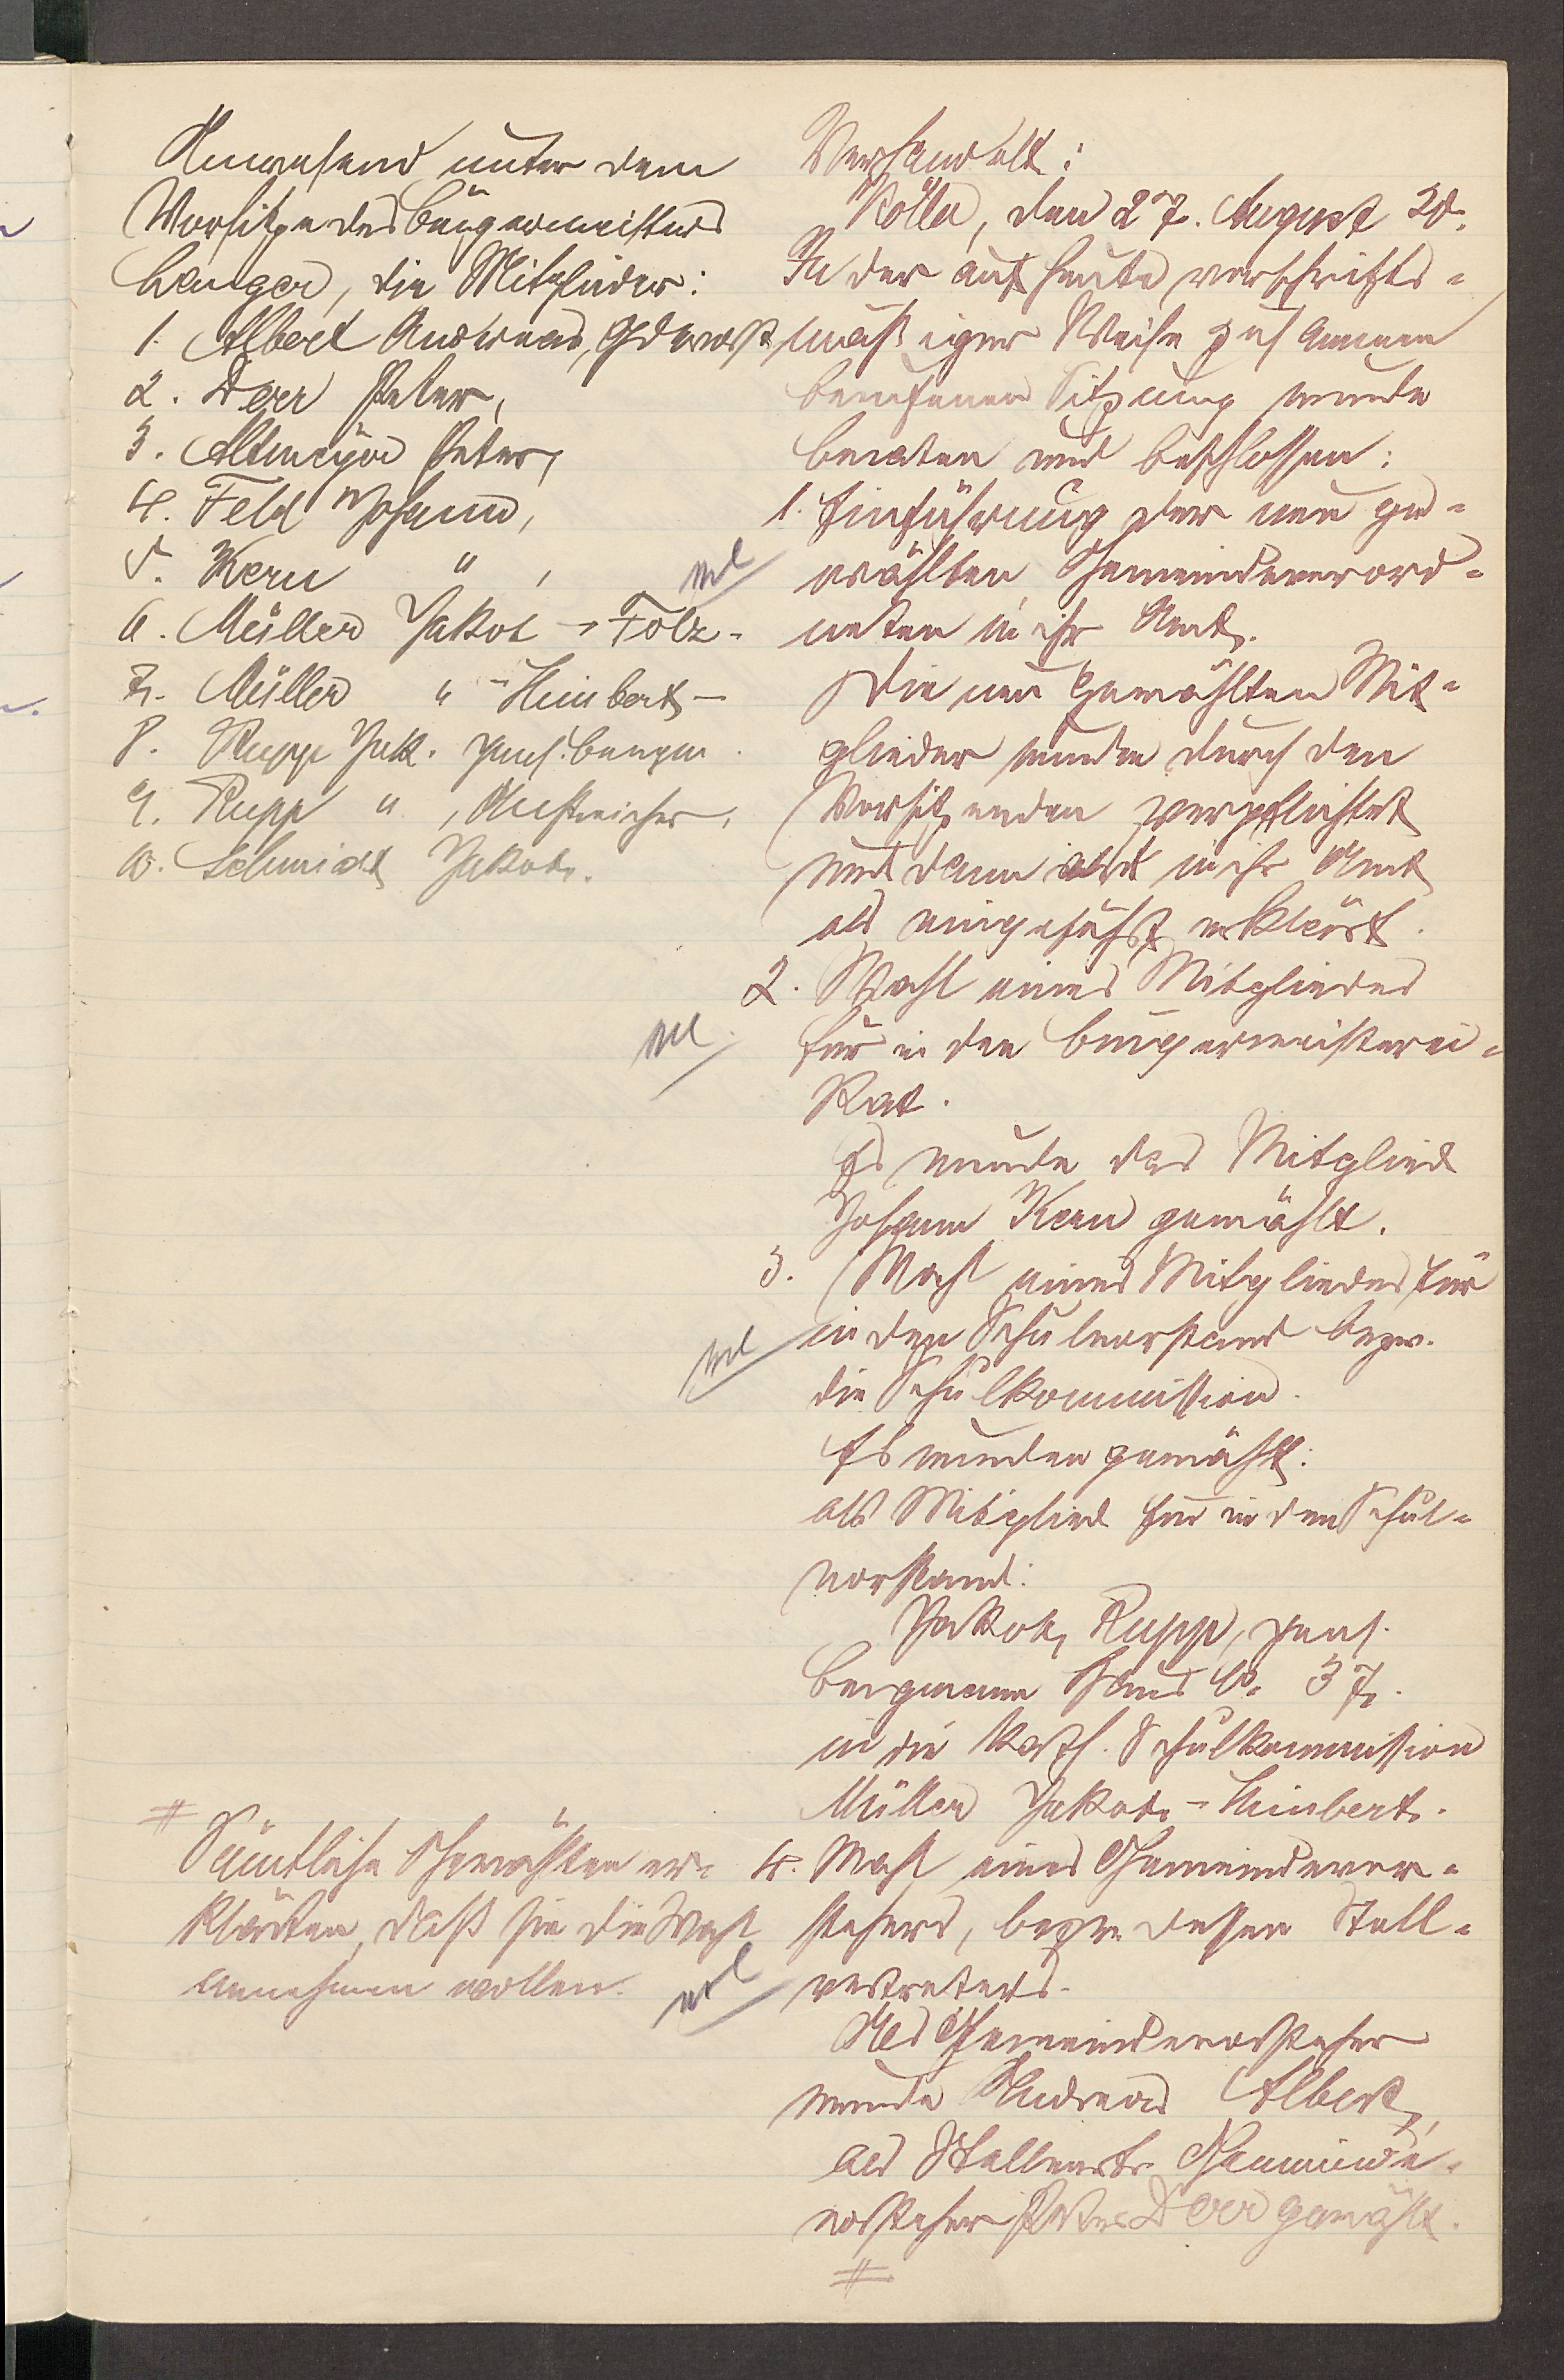 Anwesend unter dem
Vorsitze des Bürgermeisters
Langer, die Mitglieder:
1. Albert Andreas, Gdevorst.
2. Derr Peter,
3. Altmeyer Peter,
4. Feld Johann,
5. Kern " ,
6. Müller Jakob - Folz -
7. Müller " - Heinbert -
8. Rupp Jak. pens. Bergm.
9. Rupp " , Anstreicher,
10. Schmidt Jakob.
# Sämtliche Gewählten er-
klärten, daß sie die Wahl
annehmen wollen.
Verhandelt:
Kölln, den 27. August 20.
In der auf heute vorschrifts-
mäßiger Weise zusammen
berufenen Sitzung wurde
beraten und beschlossen:
1. Einführung der neu ge-
wählten Gemeindeverord-
neten in ihr Amt.
Die neu gewählten Mit-
glieder wurden durch den
Vorsitzenden verpflichtet
und dann in ihr Amt
als eingeführt erklärt.
2. Wahl eines Mitgliedes
für in den Bürgermeisterei-
Rat.
Es wurde das Mitglied
Johann Kern gewählt.
3. Wahl eines Mitgliedes für
in den Schulvorstand bezw.
die Schulkommission.
Es wurden gewählt:
als Mitglied für in den Schul-
vorstand:
Jakob Rupp, pens.
Bergmann Haus No. 37.
in die kath. Schulkommission
Müller Jakob - Heinbert.
4. Wahl eines Gemeindevor-
stehers, bezw. dessen Stell-
vertreters.
Als Gemeindevorsteher
wurde Andreas Albert,
als Stellvertr. Gemeinde-
vorsteher Peter Derr gewählt.
#